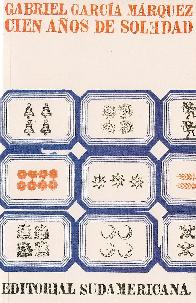 GABRIEL GARCÍA MÁRQUEZ
CIEN AÑOS DE SOLEDAD
EDITORIAL SUDAMERICANA